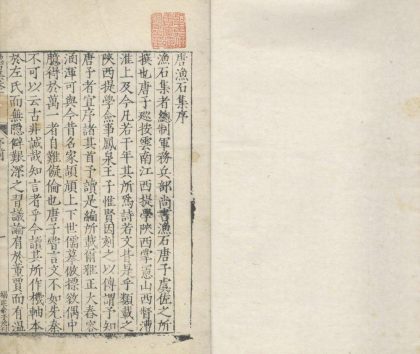 唐漁石集序
漁石集者總制軍務兵部尚書漁石唐子虞佐之所
撰也唐子廵按雲南江西提學陝西掌憲山西督漕
淮上及今凡若干年其所爲詩若文甚畧乎類載之
陝西提學僉事鳳泉王子惟賢因刻之以傳謂予知
唐子者宜序諸其首予讀是編所載爾雅正大舂容
涵渾可與今昔名家頡頏上下世儒摹倣標敓偶中
髣得於萬一者自難儗倫也唐子嘗言文不如先秦
不可以云古非誠哉知言者乎今讀其所作機軸本
於左氏而無隱僻艱深之習議論肩於董賈而有溫